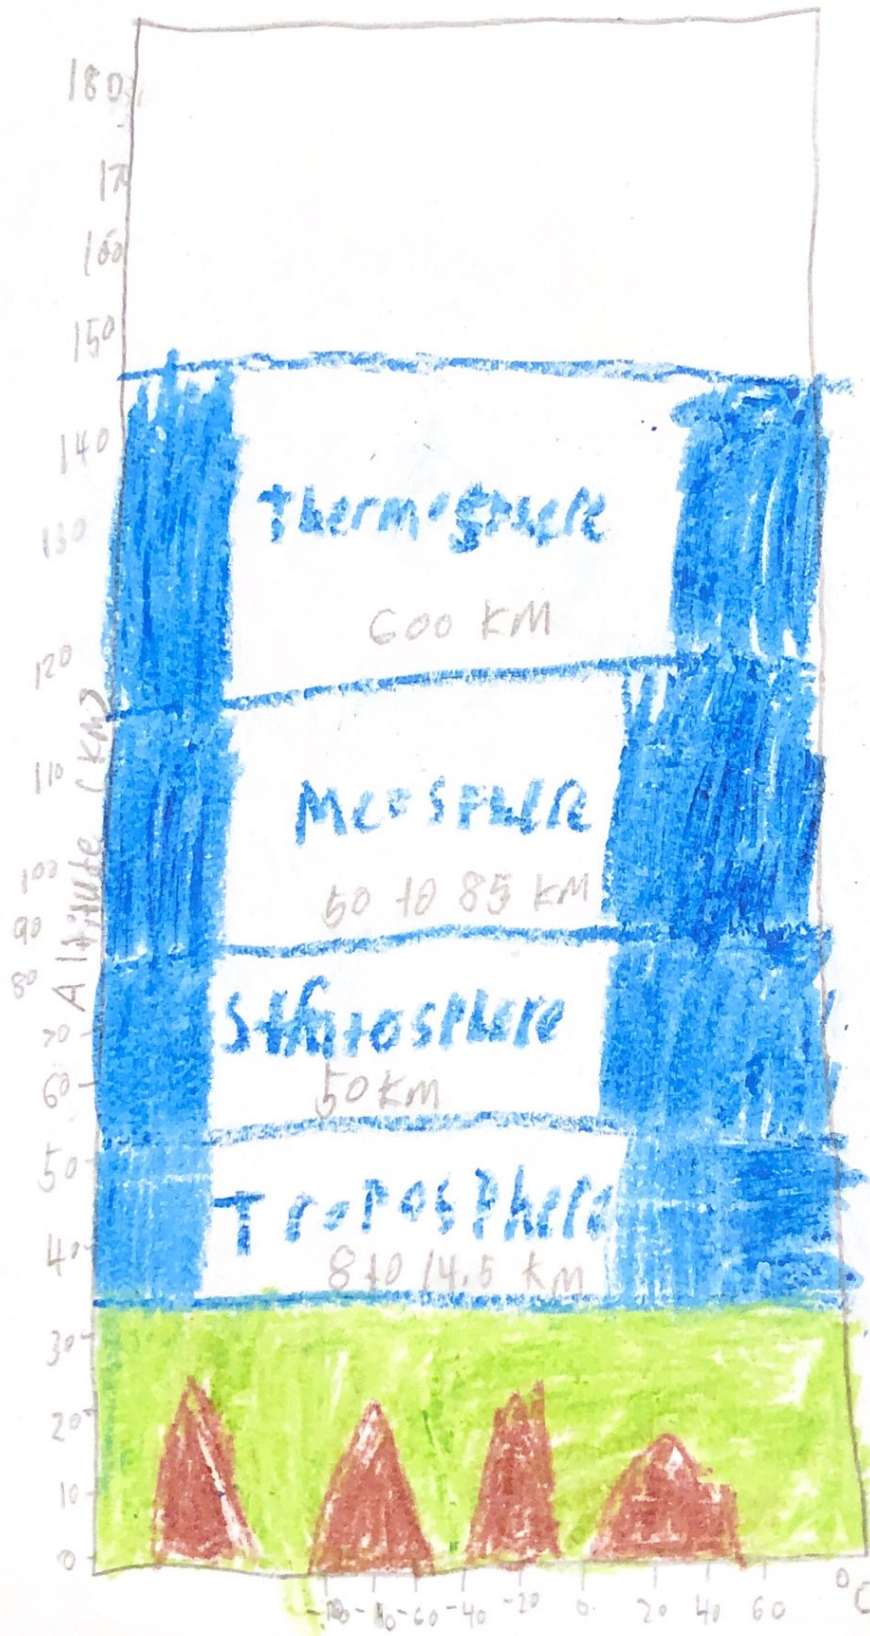 180
17
160
150
140
130
120
110
100
90
80
70
60
50
40
30
20
10
0
Altitude (KM)
Thermosphere
600 KM
Meosphere
50 to 85 KM
Stratosphere
50 KM
Troposphere
8 to 14.5 km
-60 -40 -20 0 20 40 60 °C